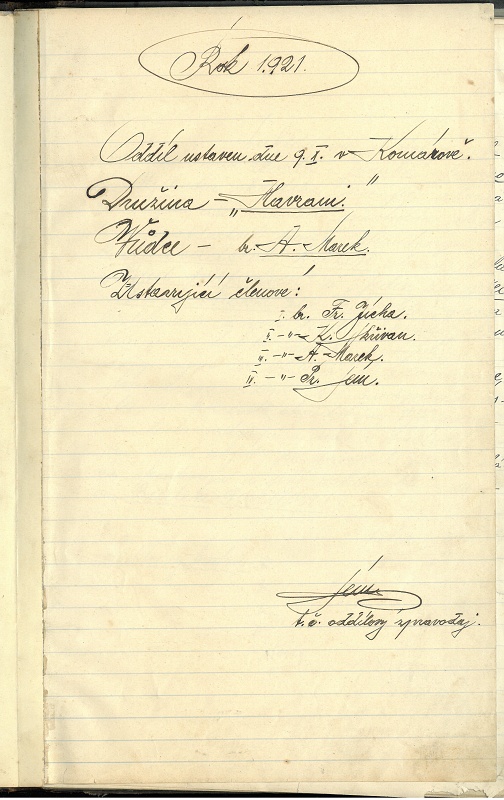 Rok 1921.
Oddíl ustaven dne 9. X. v Komárově.
Družina – „Havrani."
Vůdce – br. A. Marek.
Ustavující členové:
I. br. Fr. Jícha.
II. -„- K. Skřivan.
III. -„- A. Marek.
IV. -„- Fr. Jem.
Jem
t. č. oddílový zpravodaj.